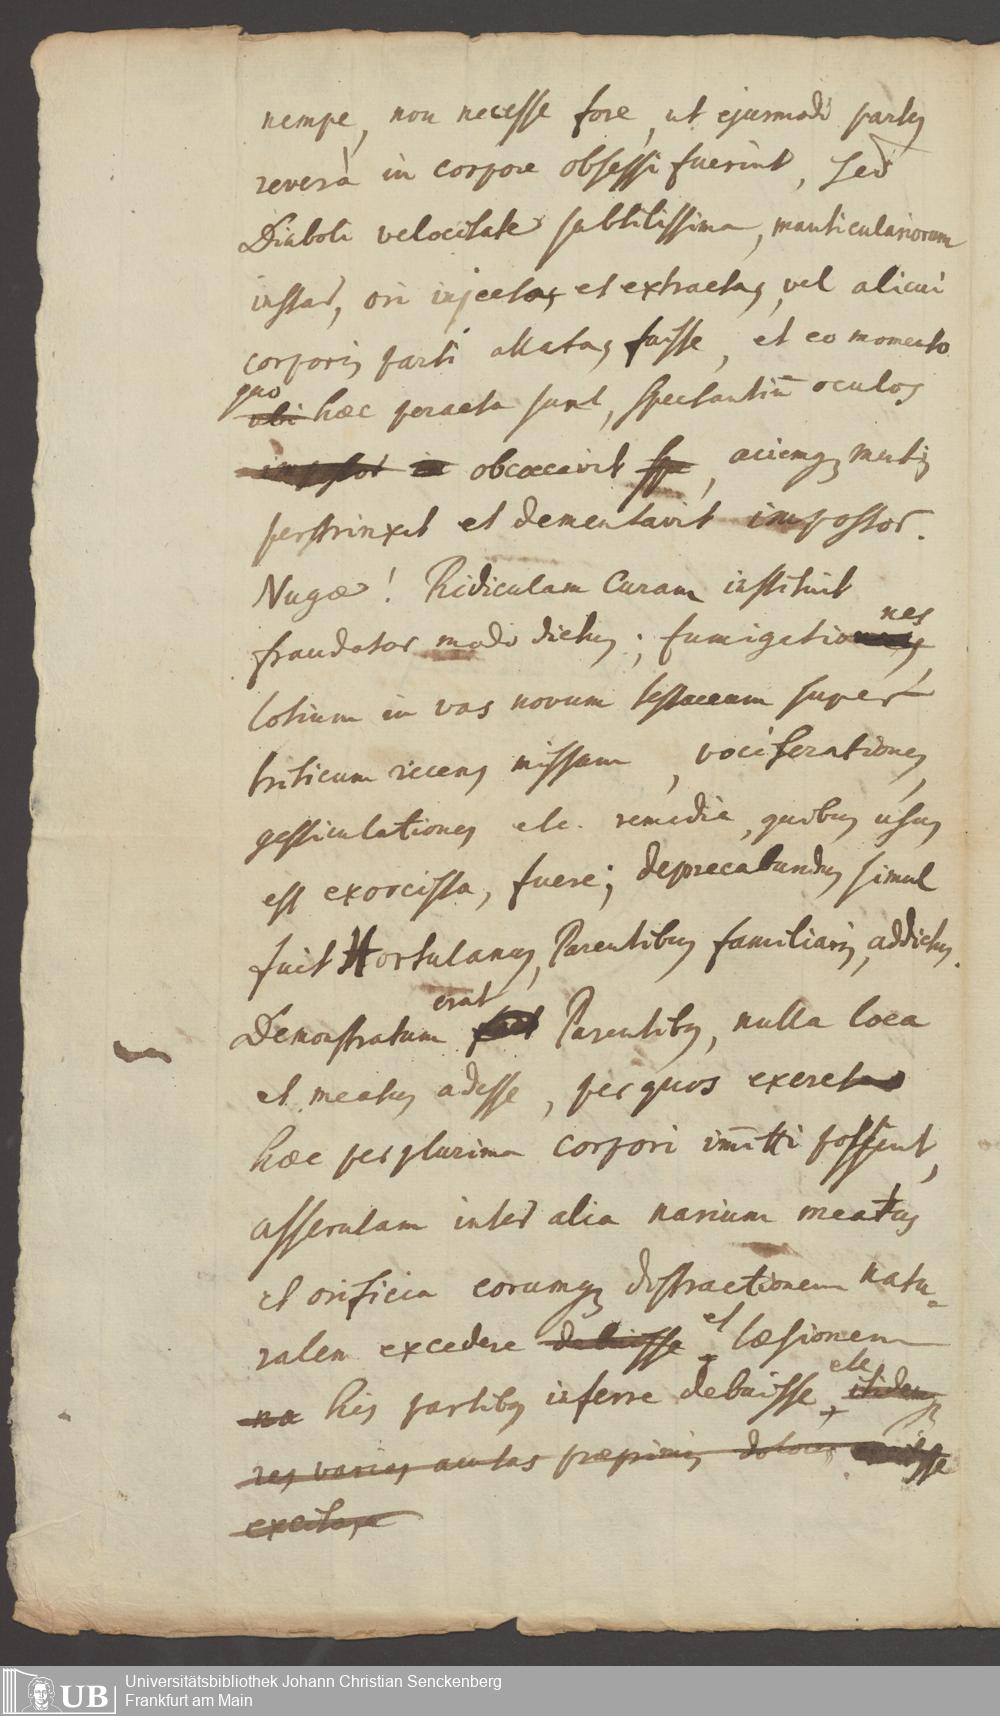 nempe, non necesse fore, ut ejusmodi partes
reverà in corpore obsessi fuerint, sed
Diaboli velocitate subtilissima, manticulariorum
instar, ori injectas et extractas, vel alicui
corporis parti allatas fuisse, et eo momento
quo
ubi hæc peracta sunt, spectantiū oculos
impostor in obcæcavit, aciemq mentis
perstrinxit et dementavit impostor.
Nugæ! Ridiculam Curam instituit
fraudator modo dictus; fumigationes,
lotium in vas novum testaceum super
triticum recens missum, vociferationes,
gesticulationes etc. remedia, quibus usus
est exorcista, fuere; deprecabundus simul
fuit Hortulanus, Parentibus familiaris, addictus.
erat
Demonstratum Parentibus, nulla loca
et meatus adesse, per quos excreta
hæc per plurima corpori im̄itti possent,
asserulam inter alia narium meatus
et orificia eorumq distractionem natu-
ralem excedere debuisse et læsionem
na his partibus inferre debuisse, etc itidem
res varias acutas præprimis dolores
excitare
Universitätsbibliothek Johann Christian Senckenberg
UB Frankfurt am Main